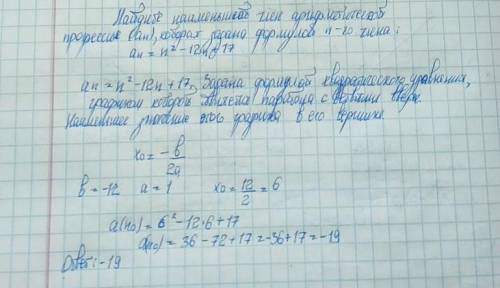 Найдите наименьший член арифметической
прогрессии (an), которая задана формулой n-го члена:
an = n² - 12n + 17
an = n² - 12n + 17, Задана формулой квадратического уравнения,
графиком которой является парабола с ветвями вверх.
Наименьшее значение этого графика в его вершине.
x₀ = - b/2a
b = -12 a = 1 x₀ = 12/2 = 6
a(n₀) = 6² - 12·6 + 17
a(n₀) = 36 - 72 + 17 = -36 + 17 = -19
Ответ: -19